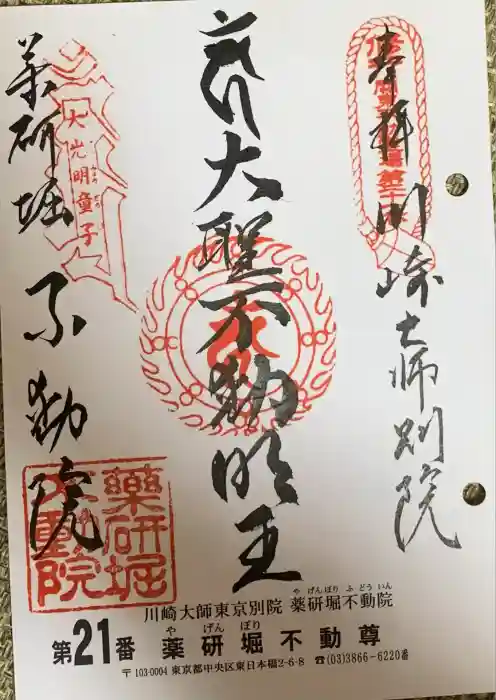 奉拝
川崎大師別院
大聖不動明王
大光明童子
どう
じ
薬研堀不動院
薬研堀
不動院
川崎大師東京別院 薬研堀不動院
や げんぼり ふ どう いん
第21番 薬研堀不動尊
や げん ぼり
〒103-0004 東京都中央区東日本橋2-6-8 ☎(03)3866-6220番